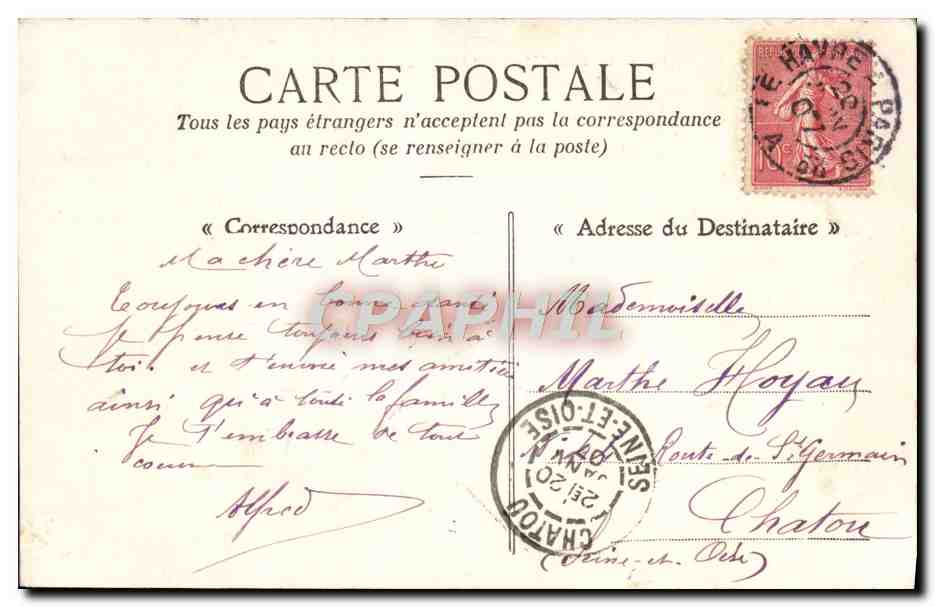 CARTE POSTALE
Tous les pays étrangers n'acceptent pas la correspondance
au recto (se renseigner à la poste)
« Correspondance »
Ma chère Marthe
Toujours en bonne santé
Je pense toujours bien à
toi. et t'envoie mes amitiés
ainsi qu'à toute la famille
Je t'embrasse de tout
coeur
Alfred
« Adresse du Destinataire »
Mademoiselle
Marthe Hoyau
Route de St Germain
Chatou
(Seine-et-Oise)
LE HAVRE A PARIS
10c
CHATOU
SEINE-ET-OISE
20
JANV
07
CPAPHIL